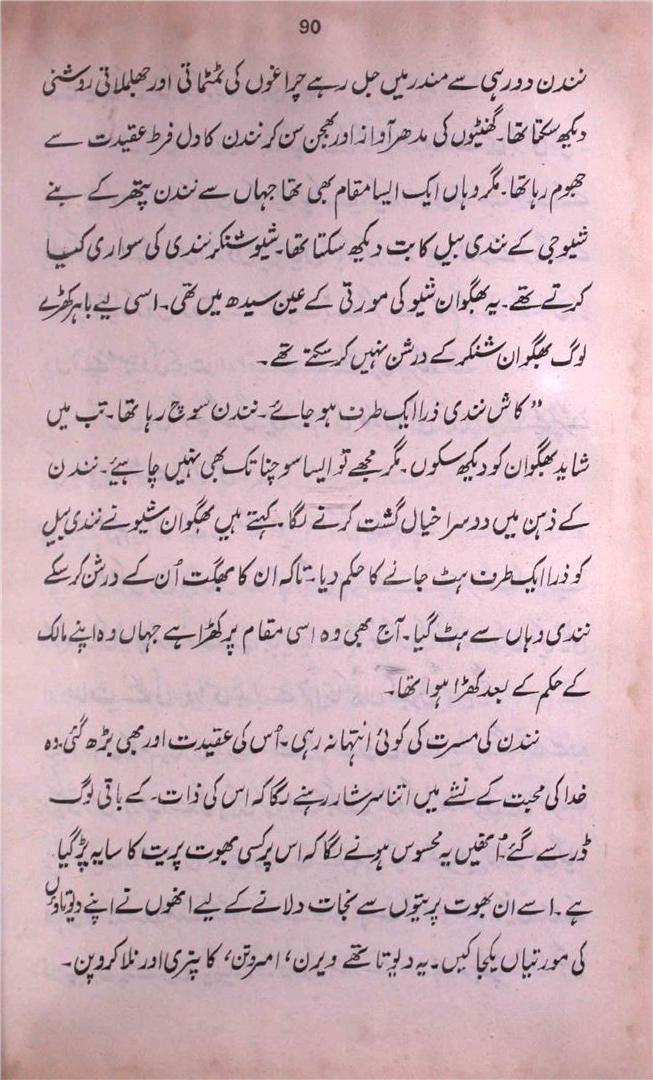 90
نندن دور ہی سے مندر میں جل رہے چراغوں کی ٹمٹماتی اور جھلملاتی روشنی
دیکھ سکتا تھا۔ گھنٹیوں کی مدھر آواز اور بھجن سن کر نندن کا دل فرط عقیدت سے
جھوم رہا تھا۔ مگر وہاں ایک ایسا مقام بھی تھا جہاں سے نندن پتھر کے بنے
شیو جی کے نندی بیل کا بت دیکھ سکتا تھا۔ شیو شنکر نندی کی سواری کیا
کرتے تھے۔ یہ بھگوان شیو کی مورتی کے عین سیدھ میں تھی۔ اسی لیے باہر کھڑے
لوگ بھگوان شنکر کے درشن نہیں کر سکتے تھے۔
”کاش نندی ذرا ایک طرف ہو جائے۔ نندن سوچ رہا تھا۔ تب میں
شاید بھگوان کو دیکھ سکوں۔ مگر مجھے تو ایسا سوچنا تک بھی نہیں چاہیئے۔ نندن
کے ذہن میں دوسرا خیال گشت کرنے لگا۔ کہتے ہیں بھگوان شیو نے نندی بیل
کو ذرا ایک طرف ہٹ جانے کا حکم دیا۔ تاکہ ان کا بھگت اُن کے درشن کر سکے
نندی وہاں سے ہٹ گیا۔ آج بھی وہ اسی مقام پر کھڑا ہے جہاں وہ اپنے مالک
کے حکم کے بعد کھڑا ہوا تھا۔
نندن کی مسرت کی کوئی انتہا نہ رہی۔ اُس کی عقیدت اور بھی بڑھ گئی۔ وہ
خدا کی محبت کے نشے میں اتنا سرشار رہنے لگا کہ اس کی ذات۔ کے باقی لوگ
ڈر سے گئے۔ اُنھیں یہ محسوس ہونے لگا کہ اس پر کسی بھوت پریت کا سایہ پڑ گیا
ہے۔ اسے ان بھوت پریتوں سے نجات دلانے کے لیے انھوں نے اپنے دیوتاؤں
کی مورتیاں یکجا کیں۔ یہ دیوتا تھے ویرن، امروتن، کاپتری اور نلا کروپن۔